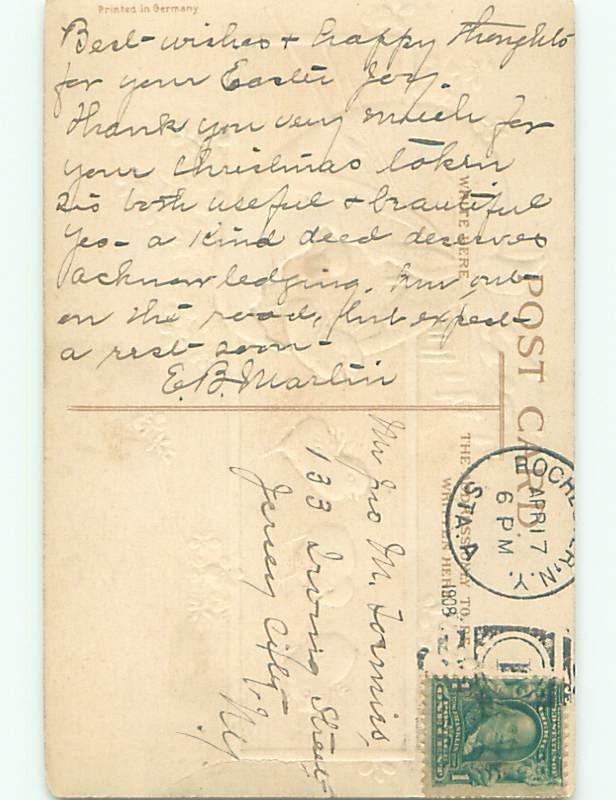 Printed in Germany
Best wishes + happy thoughts
for your Easter Joy.
Thank you very much for
your Christmas token
is both useful + beautiful
Yes - a kind deed deserves
acknowledging. Am out
on the road, but expect
a rest soon -
E. B. Martin
POST CARD.
WRITE HERE
THE ADDRESS ONLY TO BE
WRITTEN HERE
Mr Jno M.
133 Irving Street
Jersey City
NJ
ROCHESTER, N.Y.
APR 17
6 PM
1908
STA. A
1